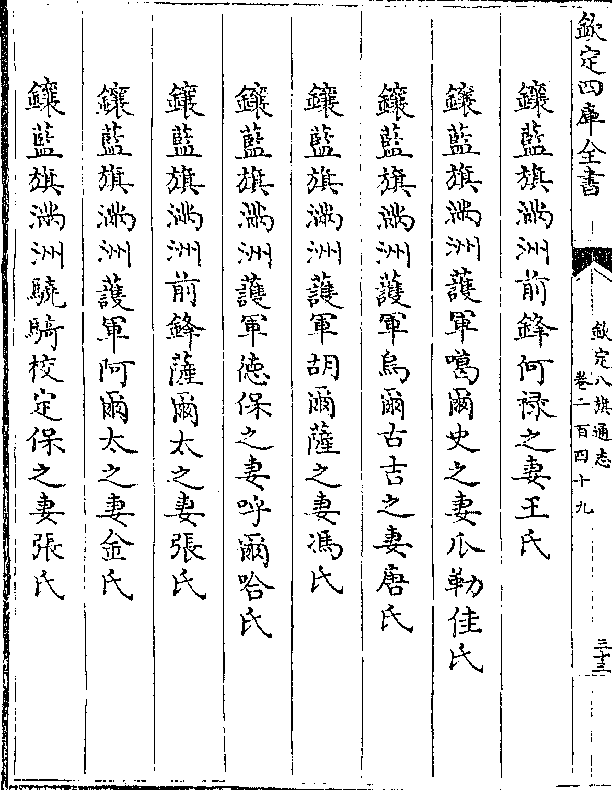 欽定四庫全書
欽定八旗通志
卷二百四十九
三十三
鑲藍旗滿洲前鋒何祿之妻王氏
鑲藍旗滿洲護軍噶爾史之妻瓜勒佳氏
鑲藍旗滿洲護軍烏爾古吉之妻唐氏
鑲藍旗滿洲護軍胡爾薩之妻馮氏
鑲藍旗滿洲護軍德保之妻呼爾哈氏
鑲藍旗滿洲前鋒薩爾太之妻張氏
鑲藍旗滿洲護軍阿爾太之妻金氏
鑲藍旗滿洲驍騎校定保之妻張氏